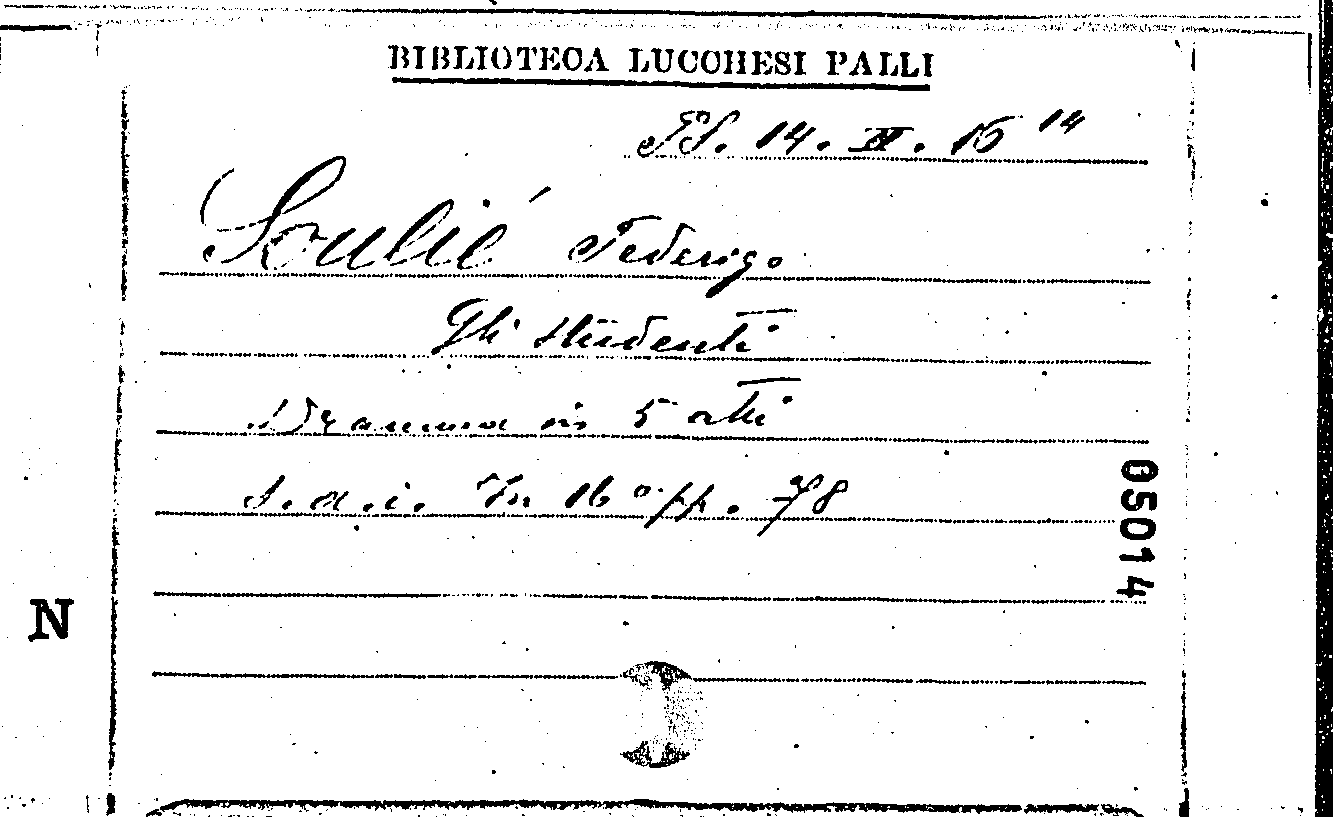 BIBLIOTECA LUCCHESI PALLI
14. II. 16 14
Soulié Federigo
Gli studenti
Dramma in 5 atti
S. a. i. In 16° pp. 78
05014
N